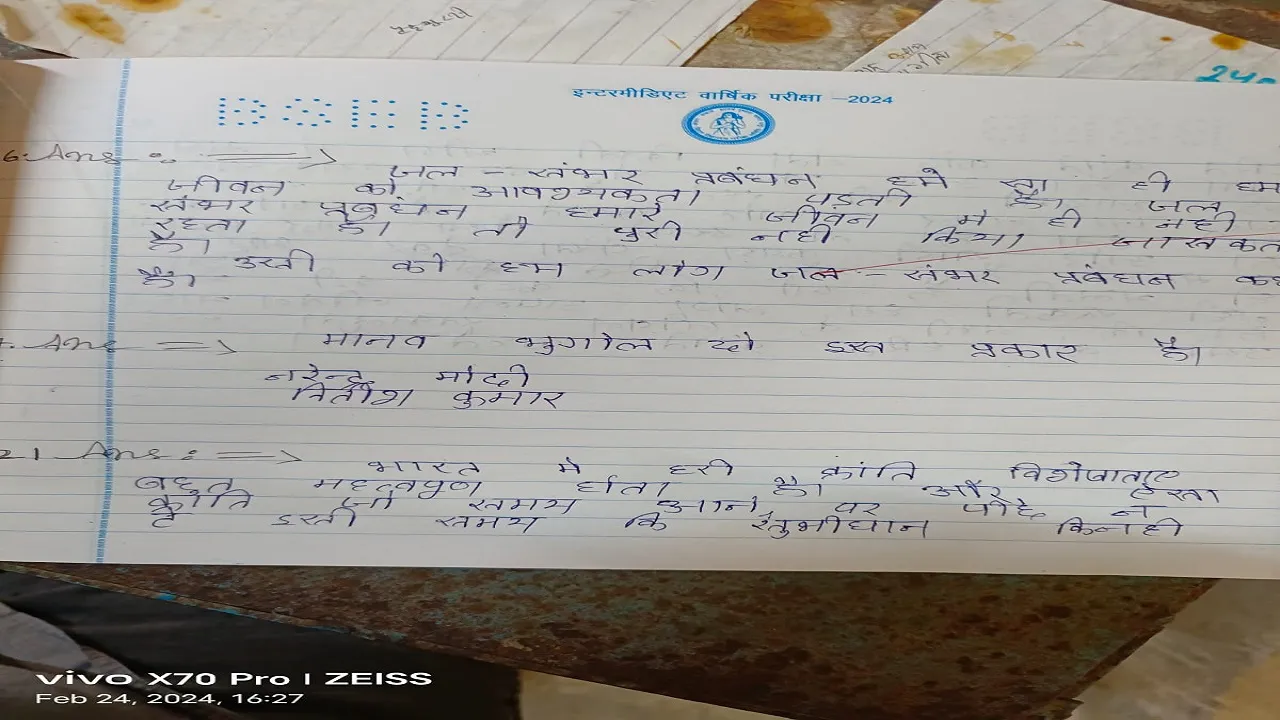 इन्टरमीडिएट वार्षिक परीक्षा -2024
6. Ans :. ⇒ जल - संभर प्रबंधन हमे सा ही हम
जीवन को आवश्यकता पड़ती है। जल
संभर प्रबंधन हमारे जीवन मे ही नही
रहता है। तो पुरी नही किया जा सकत
है।
उसी को हम लोग जल - संभर प्रबंधन कह
है।
Ans ⇒ मानव भुगोल दो इस प्रकार है।
नरेन्द्र मोदी
नितीश कुमार
21 Ans : ⇒ भारत मे हरी क्रांति विशेषाताए
बहुत महत्वपुण होता है। और हरता
क्रांति जो समय आने पर न
है इसी समय कि किनही
vivo X70 Pro | ZEISS
Feb 24, 2024, 16:27